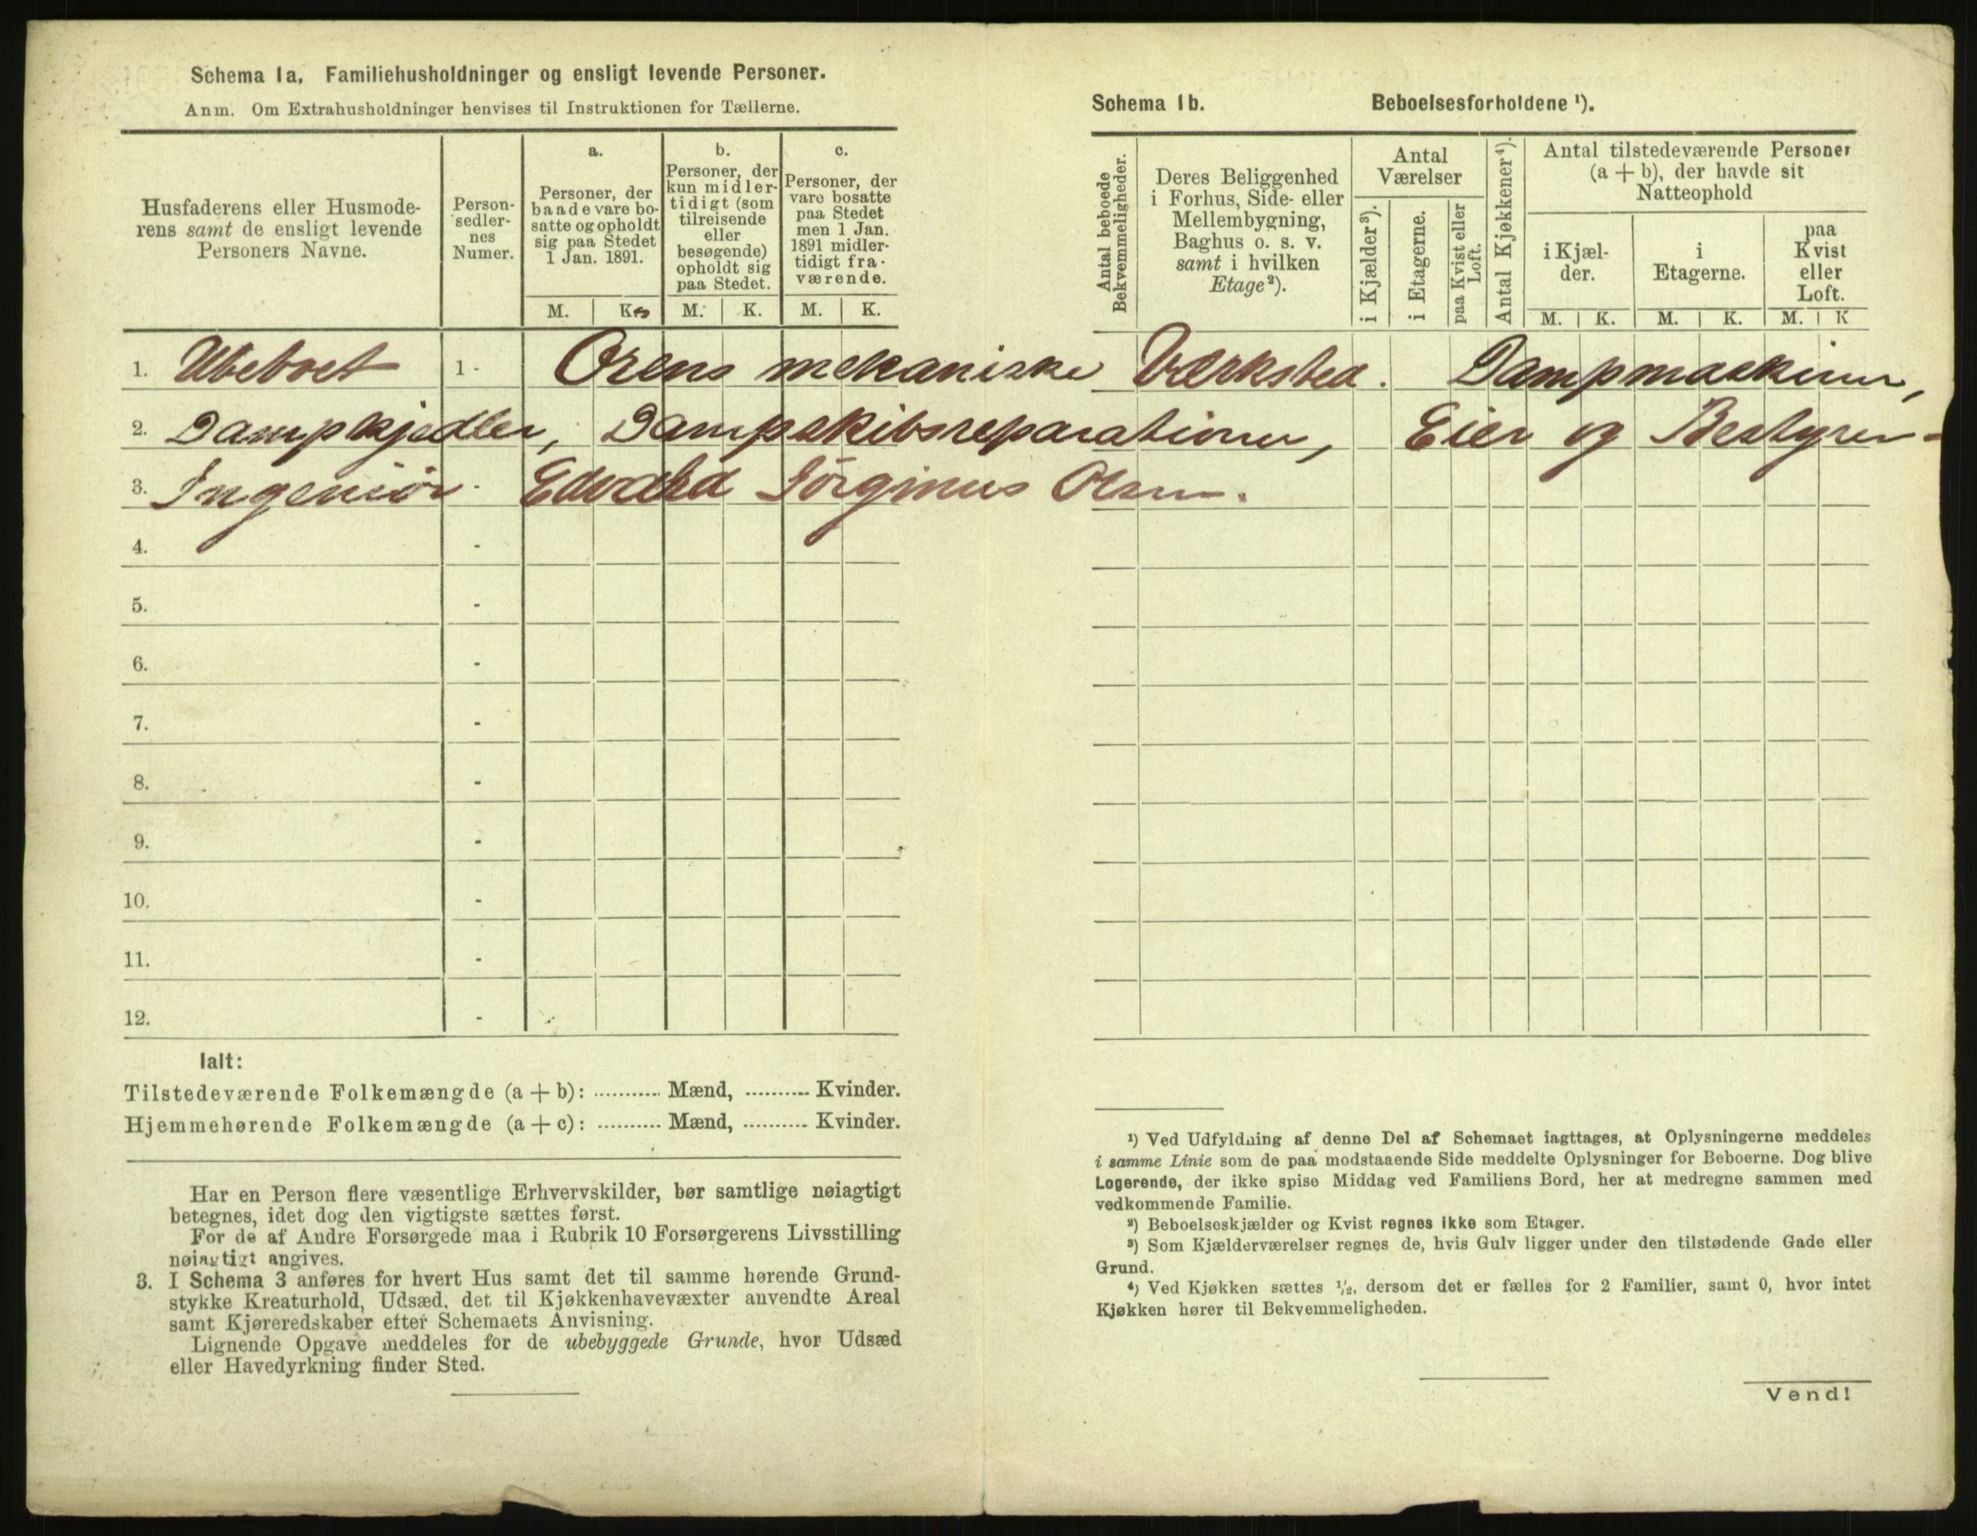 Schema 1a. Familiehusholdninger og ensligt levende Personer.
Anm. Om Extrahusholdninger henvises til Instruktionen for Tællerne.
Husfaderens eller Husmode-
rens samt de ensligt levende
Personers Navne.
Person-
sedler-
nes
Numer.
a.
Personer, der
baade vare bo-
satte og opholdt
sig paa Stedet
1 Jan. 1891.
M. K.
b.
Personer, der
kun midler-
tidigt (som
tilreisende
eller
besøgende)
opholdt sig
paa Stedet.
M. K.
c.
Personer, der
vare bosatte
paa Stedet
men 1 Jan.
1891 midler-
tidigt fra-
værende.
M. K.
Schema 1b. Beboelsesforholdene ¹).
Antal beboede
Bekvemmeligheder.
Deres Beliggenhed
i Forhus, Side- eller
Mellembygning,
Baghus o. s. v.
samt i hvilken
Etage²).
Antal
Værelser
i Kjælder³).
i Etagerne.
paa Kvist eller
Loft.
Antal Kjøkkener⁴).
Antal tilstedeværende Personer
(a + b), der havde sit
Natteophold
i Kjæl-
der.
i
Etagerne.
paa
Kvist
eller
Loft.
M. K. M. K. M. K
1. Ubeboet 1 - Ørens mekaniske Værksted. Dampmaskiner,
2. Dampkjedler, Dampskibsreparationer, Eier og Bestyrer -
3. Ingeniør - Edvard Jørginus Olsen.
4. -
5. -
6. -
7. -
8. -
9. -
10. -
11. -
12. -
Ialt:
Tilstedeværende Folkemængde (a + b): .......... Mænd, .......... Kvinder.
Hjemmehørende Folkemængde (a + c): .......... Mænd, .......... Kvinder.
Har en Person flere væsentlige Erhvervskilder, bør samtlige nøiagtigt
betegnes, idet dog den vigtigste sættes først.
For de af Andre Forsørgede maa i Rubrik 10 Forsørgerens Livsstilling
nøiagtigt angives.
3. I Schema 3 anføres for hvert Hus samt det til samme hørende Grund-
stykke Kreaturhold, Udsæd, det til Kjøkkenhavevæxter anvendte Areal
samt Kjøreredskaber efter Schemaets Anvisning.
Lignende Opgave meddeles for de ubebyggede Grunde, hvor Udsæd
eller Havedyrkning finder Sted.
¹) Ved Udfyldning af denne Del af Schemaet iagttages, at Oplysningerne meddeles
i samme Linie som de paa modstaaende Side meddelte Oplysninger for Beboerne. Dog blive
Logerende, der ikke spise Middag ved Familiens Bord, her at medregne sammen med
vedkommende Familie.
²) Beboelseskjælder og Kvist regnes ikke som Etager.
³) Som Kjælderværelser regnes de, hvis Gulv ligger under den tilstødende Gade eller
Grund.
⁴) Ved Kjøkken sættes ¹/₂, dersom det er fælles for 2 Familier, samt 0, hvor intet
Kjøkken hører til Bekvemmeligheden.
Vend!